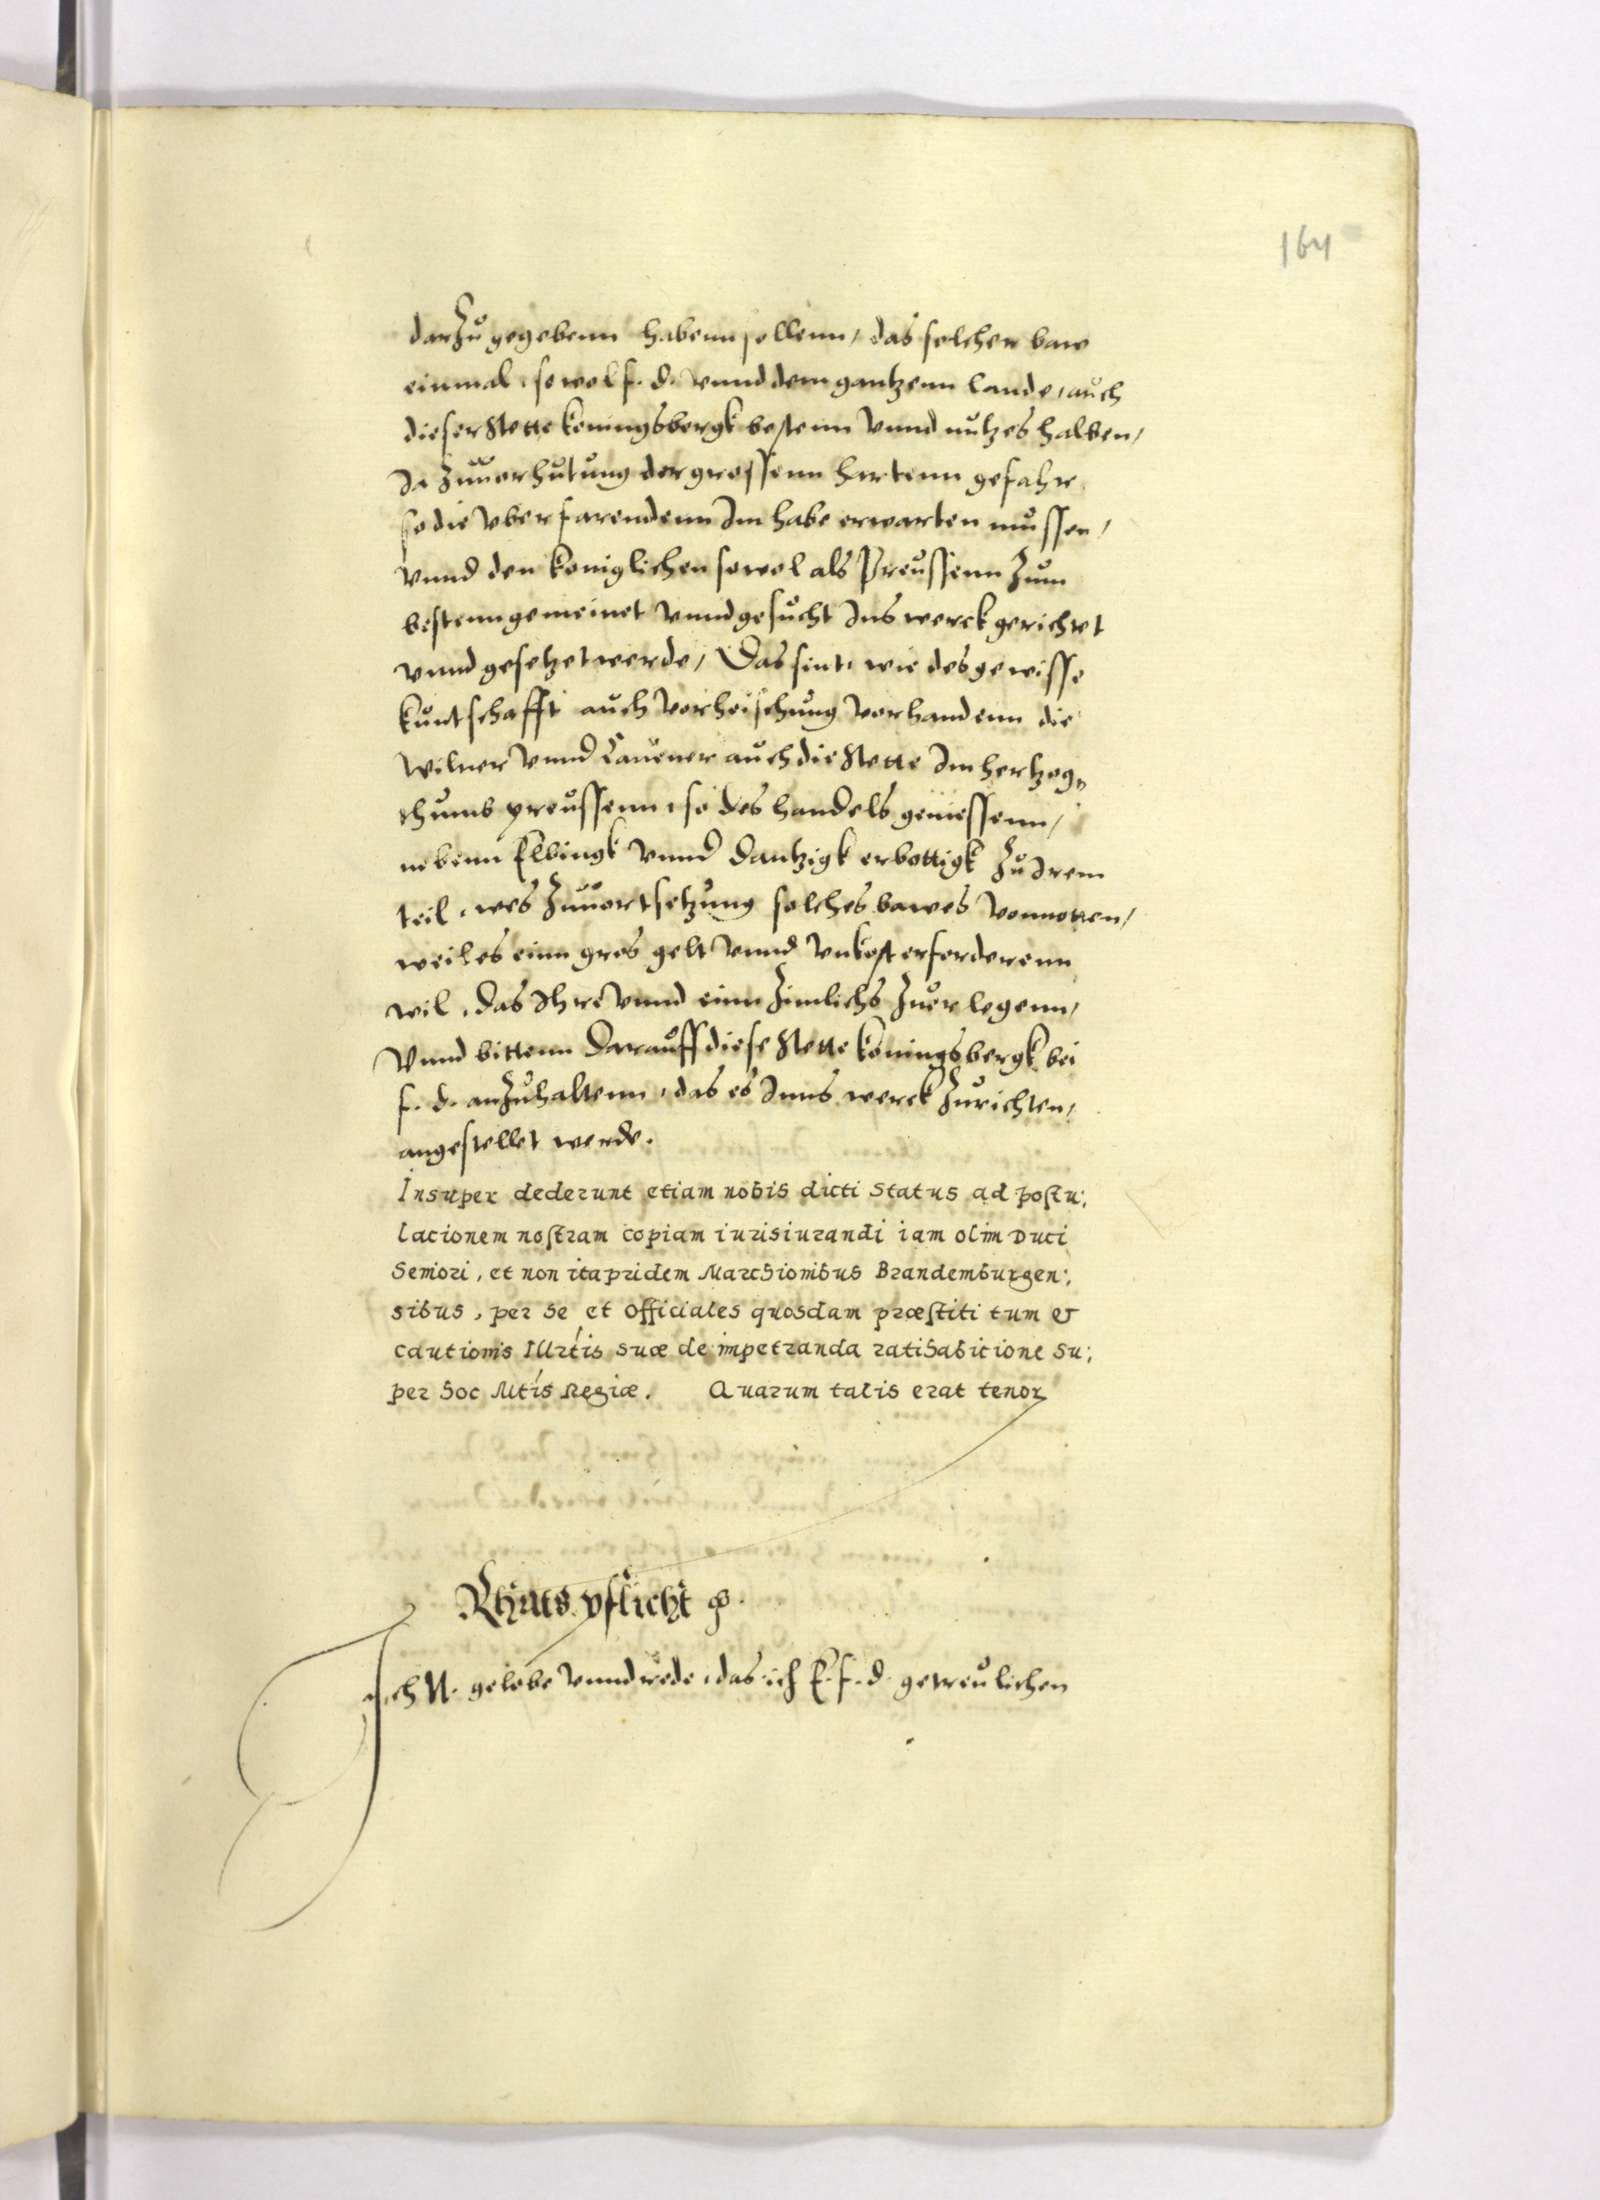 164
darzu gegebenn habenn sollenn, das solcher baw
einmal, so wol f. d. vnnd dem gantzenn lande, auch
dieser Stette Koningsbergk bestenn vnnd nutzes halben,
Ja zuuorhutung der grossenn hartenn gefahr
so die vberfarendenn Im habe erwarten mussen,
vnnd den koniglichen sowol als Preussenn zum
bestenn gemeinet vnnd gesucht Ins werck gerichtet
vnnd gesetzet werde, Das sint, wie des gewisse
kuntschafft auch vorheischung vorhandenn die
Wilner vnnd Cauener auch die Stette Im hertzog,
thumb preussenn, so des handels geniessenn,
nebenn Elbingk vnnd Dantzigk erbottigk zu Irem
teil, wes zuuortsetzung solches bawes vonnoten,
weil es einn gros gelt vnnd vnkost erforderenn
wil, das Ihre vnnd einn zimlichs zuerlegenn,
Vnnd bittenn darauff diese Stette Koningsbergk bei
f. d. anzuhaltenn, das es Inns werck zurichten,
angestellet werde.
Insuper dederunt etiam nobis dicti Status ad postu:
lacionem nostram copiam iurisiurandi iam olim Duci
Seniori, et non ita pridem Marchionibus Brandemburgen:
sibus, per se et officiales quosdam præstiti tum &
cautionis Illrtis suæ de impetranda ratihabicione su:
per hoc Mtis Regiæ. Quarum talis erat tenor
Rhats pflicht
Ich N. gelobe vnnd rede, das ich E. f. d. getreulichen